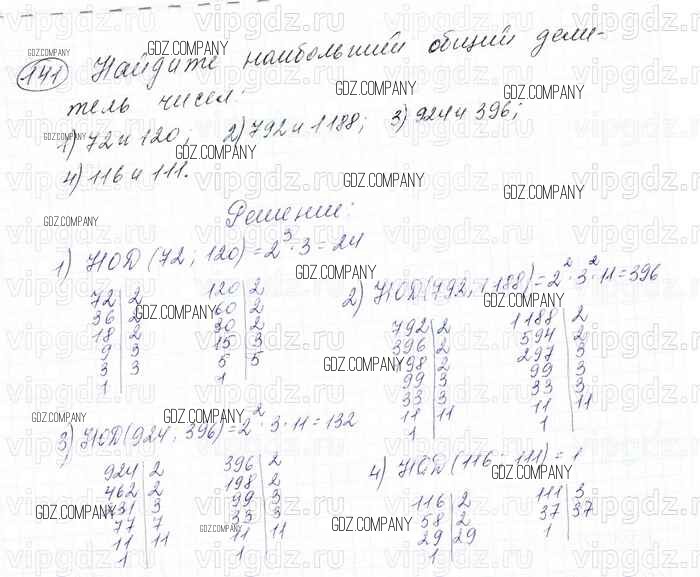 141 Найдите наибольший общий дели-
тель чисел:
1) 72 и 120; 2) 792 и 1188; 3) 924 и 396;
4) 116 и 111.
Решение:
1) НОД (72; 120) = 2³ · 3 = 24
72 | 2
36 | 2
18 | 2
9 | 3
3 | 3
1 |
120 | 2
60 | 2
30 | 2
15 | 3
5 | 5
1 |
2) НОД (792; 1188) = 2² · 3² · 11 = 396
792 | 2
396 | 2
198 | 2
99 | 3
33 | 3
11 | 11
1 |
1188 | 2
594 | 2
297 | 3
99 | 3
33 | 3
11 | 11
1 |
3) НОД (924; 396) = 2² · 3 · 11 = 132
924 | 2
462 | 2
231 | 3
77 | 7
11 | 11
1 |
396 | 2
198 | 2
99 | 3
33 | 3
11 | 11
1 |
4) НОД (116; 111) = 1
116 | 2
58 | 2
29 | 29
1 |
111 | 3
37 | 37
1 |
GDZ.COMPANY
vipgdz.ru